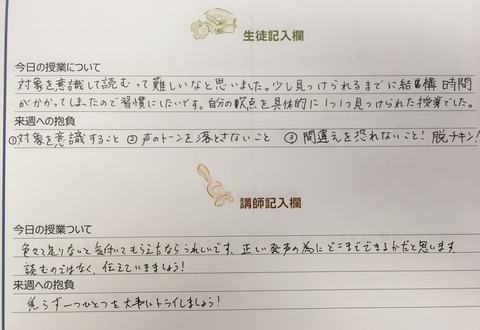 生徒記入欄
今日の授業について
対象を意識して読むって難しいなと思いました。少し見つけられるまでに結構時間
がかかってしまったので習慣にしたいです。自分の欠点を具体的に1つ1つ見つけられた授業でした。
来週への抱負
①対象を意識すること ②声のトーンを落とさないこと ③間違えを恐れないこと!脱チキン!
講師記入欄
今日の授業ついて
色々足りないと気付いてもらえたならうれしいです。正しい発声の為にどこまでできるかだと思います。
読むのではなく、伝えていきましょう!
来週への抱負
焦らず一つひとつを大事にトライしましょう!